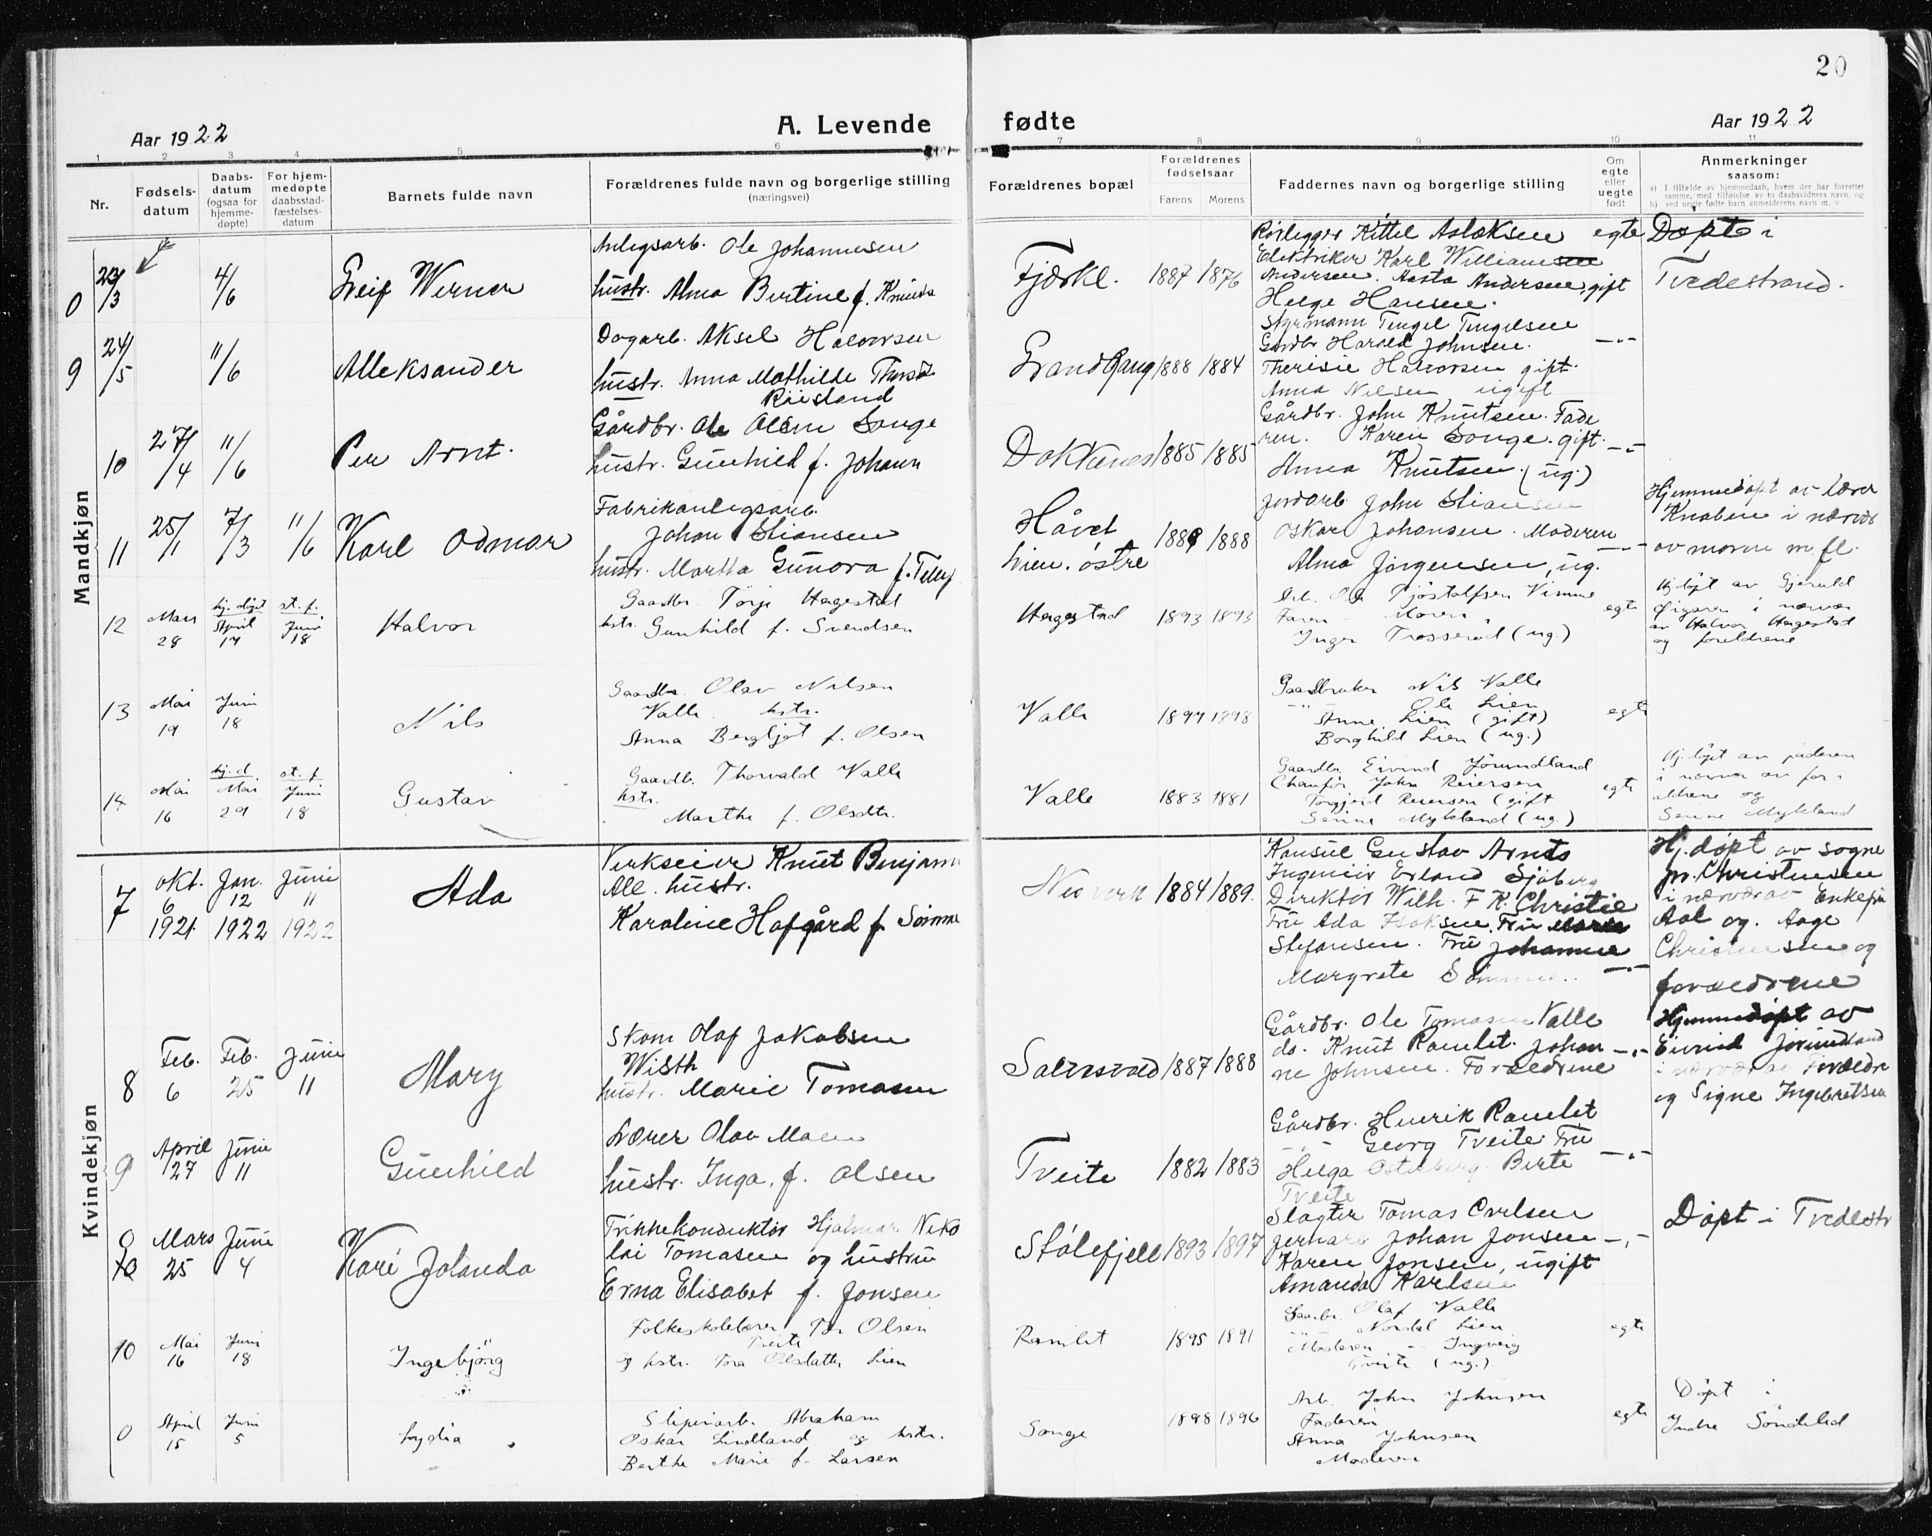 20
Aar 1922
A. Levende
fødte
Aar 1922
1 2 3 4 5 6 7 8 9 10 11
Nr.
Fødsels-
datum
Daabs-
datum
(ogsaa for
hjemme-
døpte)
For hjem-
medøpte
daabsstad-
fæstelses-
datum
Barnets fulde navn
Forældrenes fulde navn og borgerlige stilling
(næringsvei)
Forældrenes bopæl
Forældrenes
fødselsaar
Farens Morens
Faddernes navn og borgerlige stilling
Om
egte
eller
uegte
født
Anmerkninger
saasom:
a) I tilfælde av hjemmedaab, hvem der har forrettet
samme, med tilføielse av to daabsvidners navn, og
b) ved uegte fødte barn anmelderens navn m. v.
Mandkjøn
0
23/3
4/6
Leif Werner
Anlegsarb. Ole Johannesen
hustr. Alma Bertine f. Knuds
Fjærkl.
1887 1876
Rørlegger Kittel Aslaksen
Elektriker Karl Williamsen
Andersen. Aasta Andersen, gift
Helge Hansen.
egte
Døpt i
Tvedestrand.
9
24/5
11/6
Alleksander
Dagarb. Aksel Halvorsen
hustr. Anna Mathilde
Risland
Strandgang
1888 1884
Styrmann Tengel Tengelsen
Gårdbr Harald Johnsen.
Therisie Halvorsen gift.
Anna Nilsen ugift
—"—
10
27/4
11/6
Per Arnt.
Gårdbr. Ole Olsen Songe
hustr. Gunhild f. Johann
Dokkenes
1885 1885
Gårdbr. John Knutsen. Fade
ren. Karen Songe. gift.
Anna Knutsen. (ug.)
—"—
11
25/1
7/3
11/6
Karl Odmar
Fabrikanlegsarb.
Johan Stiansen
hustr. Martha Gunora f. Tellef
Håvet
Lien. østre
1889 1888
Jordarb John Stiansen
Oskar Johansen. Moderen
Alma Jørgensen, ug.
—"—
Hjemmedøpt av lærer
Knaben i nærvær
av moren m. fl.
12
Mars
28
hj. døpt
April
17
st. f.
Juni
18
Halvor
Gaardbr. Torje Hagestad
hstr. Gunhild f. Svendsen
Hagestad
1893 1893
Arb. Ole Tjøstolfsen Vimme
Faren Moren
Inger Trosserud (ug.)
egte
Hj.døpt av Gjeruld
i nærvær
av Halvor Hagestad
og foreldrene
13
Mai
19
Juni
18
Nils
Gaardbr. Olav Nilsen
Valle hstr.
Anna Bergljot f. Olsen
Valle
1897 1898
Gaardbruker Nils Valle
—"— Ole Lien
Anne Lien (gift)
Borghild Lien (ug.)
egte
14
Mai
16
hj. d.
Mai
29
st. f.
Juni
18
Gustav
Gaardbr. Thorvald Valle
hstr.
Marthe f. Olsdtr.
Valle
1883 1881
Gaardbr Eivind Jørundland
Chauffør John Reiersen
Torgjerd Reiersen (gift
Serine Mykland (ug.)
egte
Hj. døpt av faderen
i nærvær av for-
eldrene og
Serine Mykland
Kvindekjøn
7
Okt.
6
1921
Jan.
12
1922
Junie
11
1922
Ada
Verkseier Knut Benjam
All. hustr.
Karoline Hofgård f Sømme
Nes verk
1884 1889.
Konsul Gustav Arnts
Ingeniør Erland Sjøberg
Direktør Wilh. F. K. Christie
Fru Ada Isaksen. Fru Maren
Stefansen. Fru Johanne
Margrete Sømme.
—"—
Hj. døpt av sogne
pr. Christensen
i nærvær av Enkefru
Aal og. Aage
Christensen og
forældrene
8
Feb.
6
Feb.
25
Junie
11
Mary
Skom Olaf Jakobsen
Wisth
hustr. Marie Tomasen
Solvsvold
1887 1888
Gårdbr. Ole Tomasen Valle
do. Knut Ramlet. Johan
ne Johnsen. Forældrene
—"—
Hjemmedøpt av
Eivind Jørundland
i nærværelse Forældre
og Signe Ingebretsen
9
April
27
Junie
11
Gunhild
Lærer Olav Moen
hustr. Inga. f. Olsen
Tveite
1882 1883
Gårdbr. Henrik Ramlet
—"— Georg Tveite. Fru
Helga Østerberg. Birte
Tveite
—"—
0
10
Mars
25
Junie
4
Kari Jolanda
Trikkekonduktør Hjalmar Niko
lai Tomasen og hustru
Erna Elisabet f. Jonsen
Stølefjell
1893 1897
Slagter Tomas Ovelsen
Jernarb Johan Jonsen
Karen Jonsen, ugift
Amanda Karlsen
—"—
Døpt i Tvedestr
10
Mai
16
Juni
18
Ingebjørg
Folkeskolelærer Tor Olsen
Tveite
og hstr. Tora Olsdatter Lien
Ramlet
1895 1891
Gaardbr. Olaf Valle
—"— Nordal Lien
Moderen Ingveig
Tveite (ug.)
egte
0
April
15
Juni
5
Lydia
Sliperiarb. Abraham
Oskar Lindland og hstr.
Berthe Marie f. Larsen
Songe
1898 1896
Arb. John Johnsen
Faderen
Anna Johnsen
Moderen
egte
Døpt i
Indre Søndeled